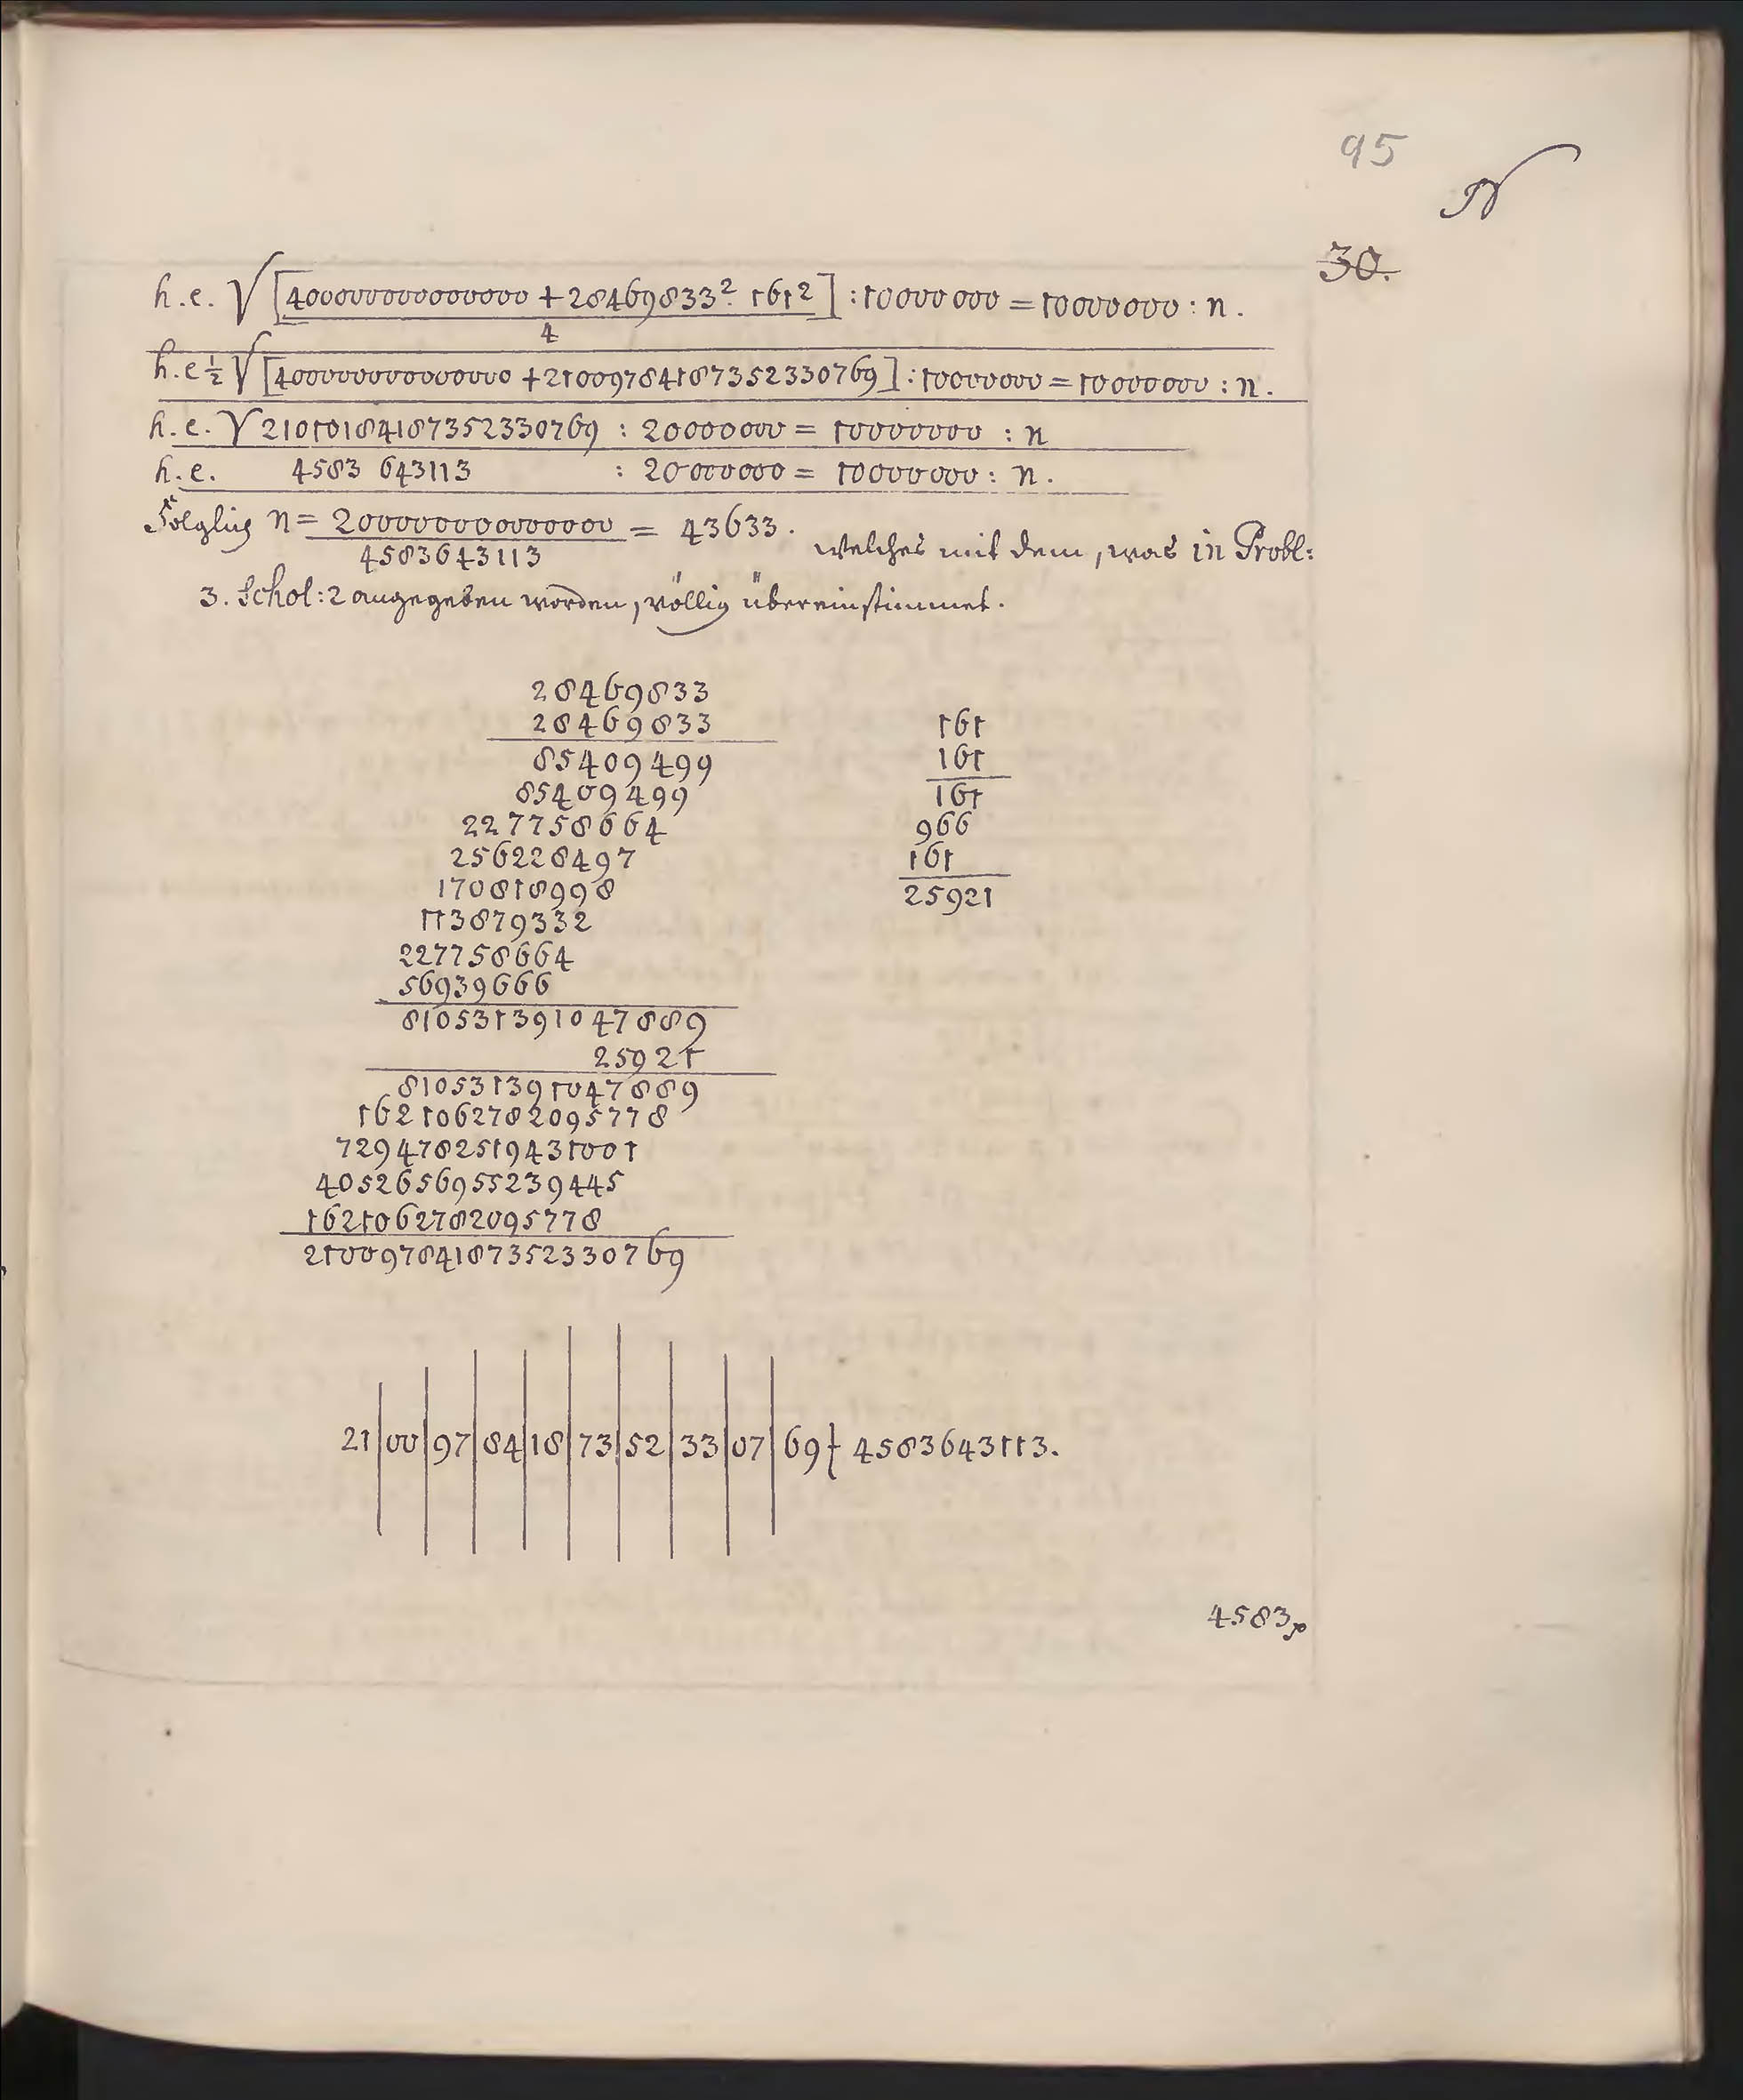 95
N
30.
h. e. √[400000000000000 + 28469833². 161²] : 10000000 = 10000000 : n.
4
h. e ½ √[400000000000000 + 21009784187352330769] : 10000000 = 10000000 : n.
h. e. √21010184187352330769 : 20000000 = 10000000 : n
h. e. 4583 643113 : 20000000 = 10000000 : n.
Folglich n = 200000000000000 = 43633. welches mit dem, was in Probl:
4583643113
3. Schol: 2 angegeben worden, völlig übereinstimmet.
28469833
28469833 161
85409499 161
85409499 161
227758664 966
256228497 161
170818998 25921
113879332
227758664
56939666
810531391047889
25921
810531391047889
1621062782095778
7294782519431001
4052656955239445
1621062782095778
21009784187352330769
21|00|97|84|18|73|52|33|07|69} 4583643113.
4583